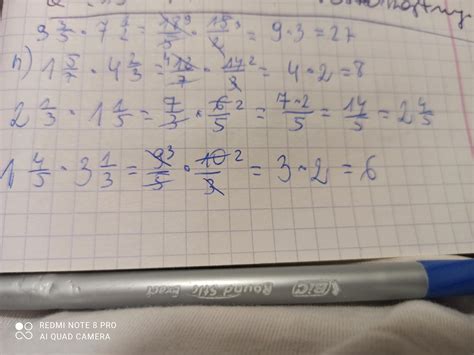 3 3/5 · 7 1/2 = 18⁹/5 · 15³/2 = 9·3=27
h) 1 5/7 · 4 2/3 = ⁴12/7 · 14²/3 = 4·2=8
2 1/3 · 1 1/5 = 7/3 · 6²/5 = 7·2/5 = 14/5 = 2 4/5
1 4/5 · 3 1/3 = 9³/5 · 10²/3 = 3·2=6
BIC Round Stic Exact
REDMI NOTE 8 PRO
AI QUAD CAMERA